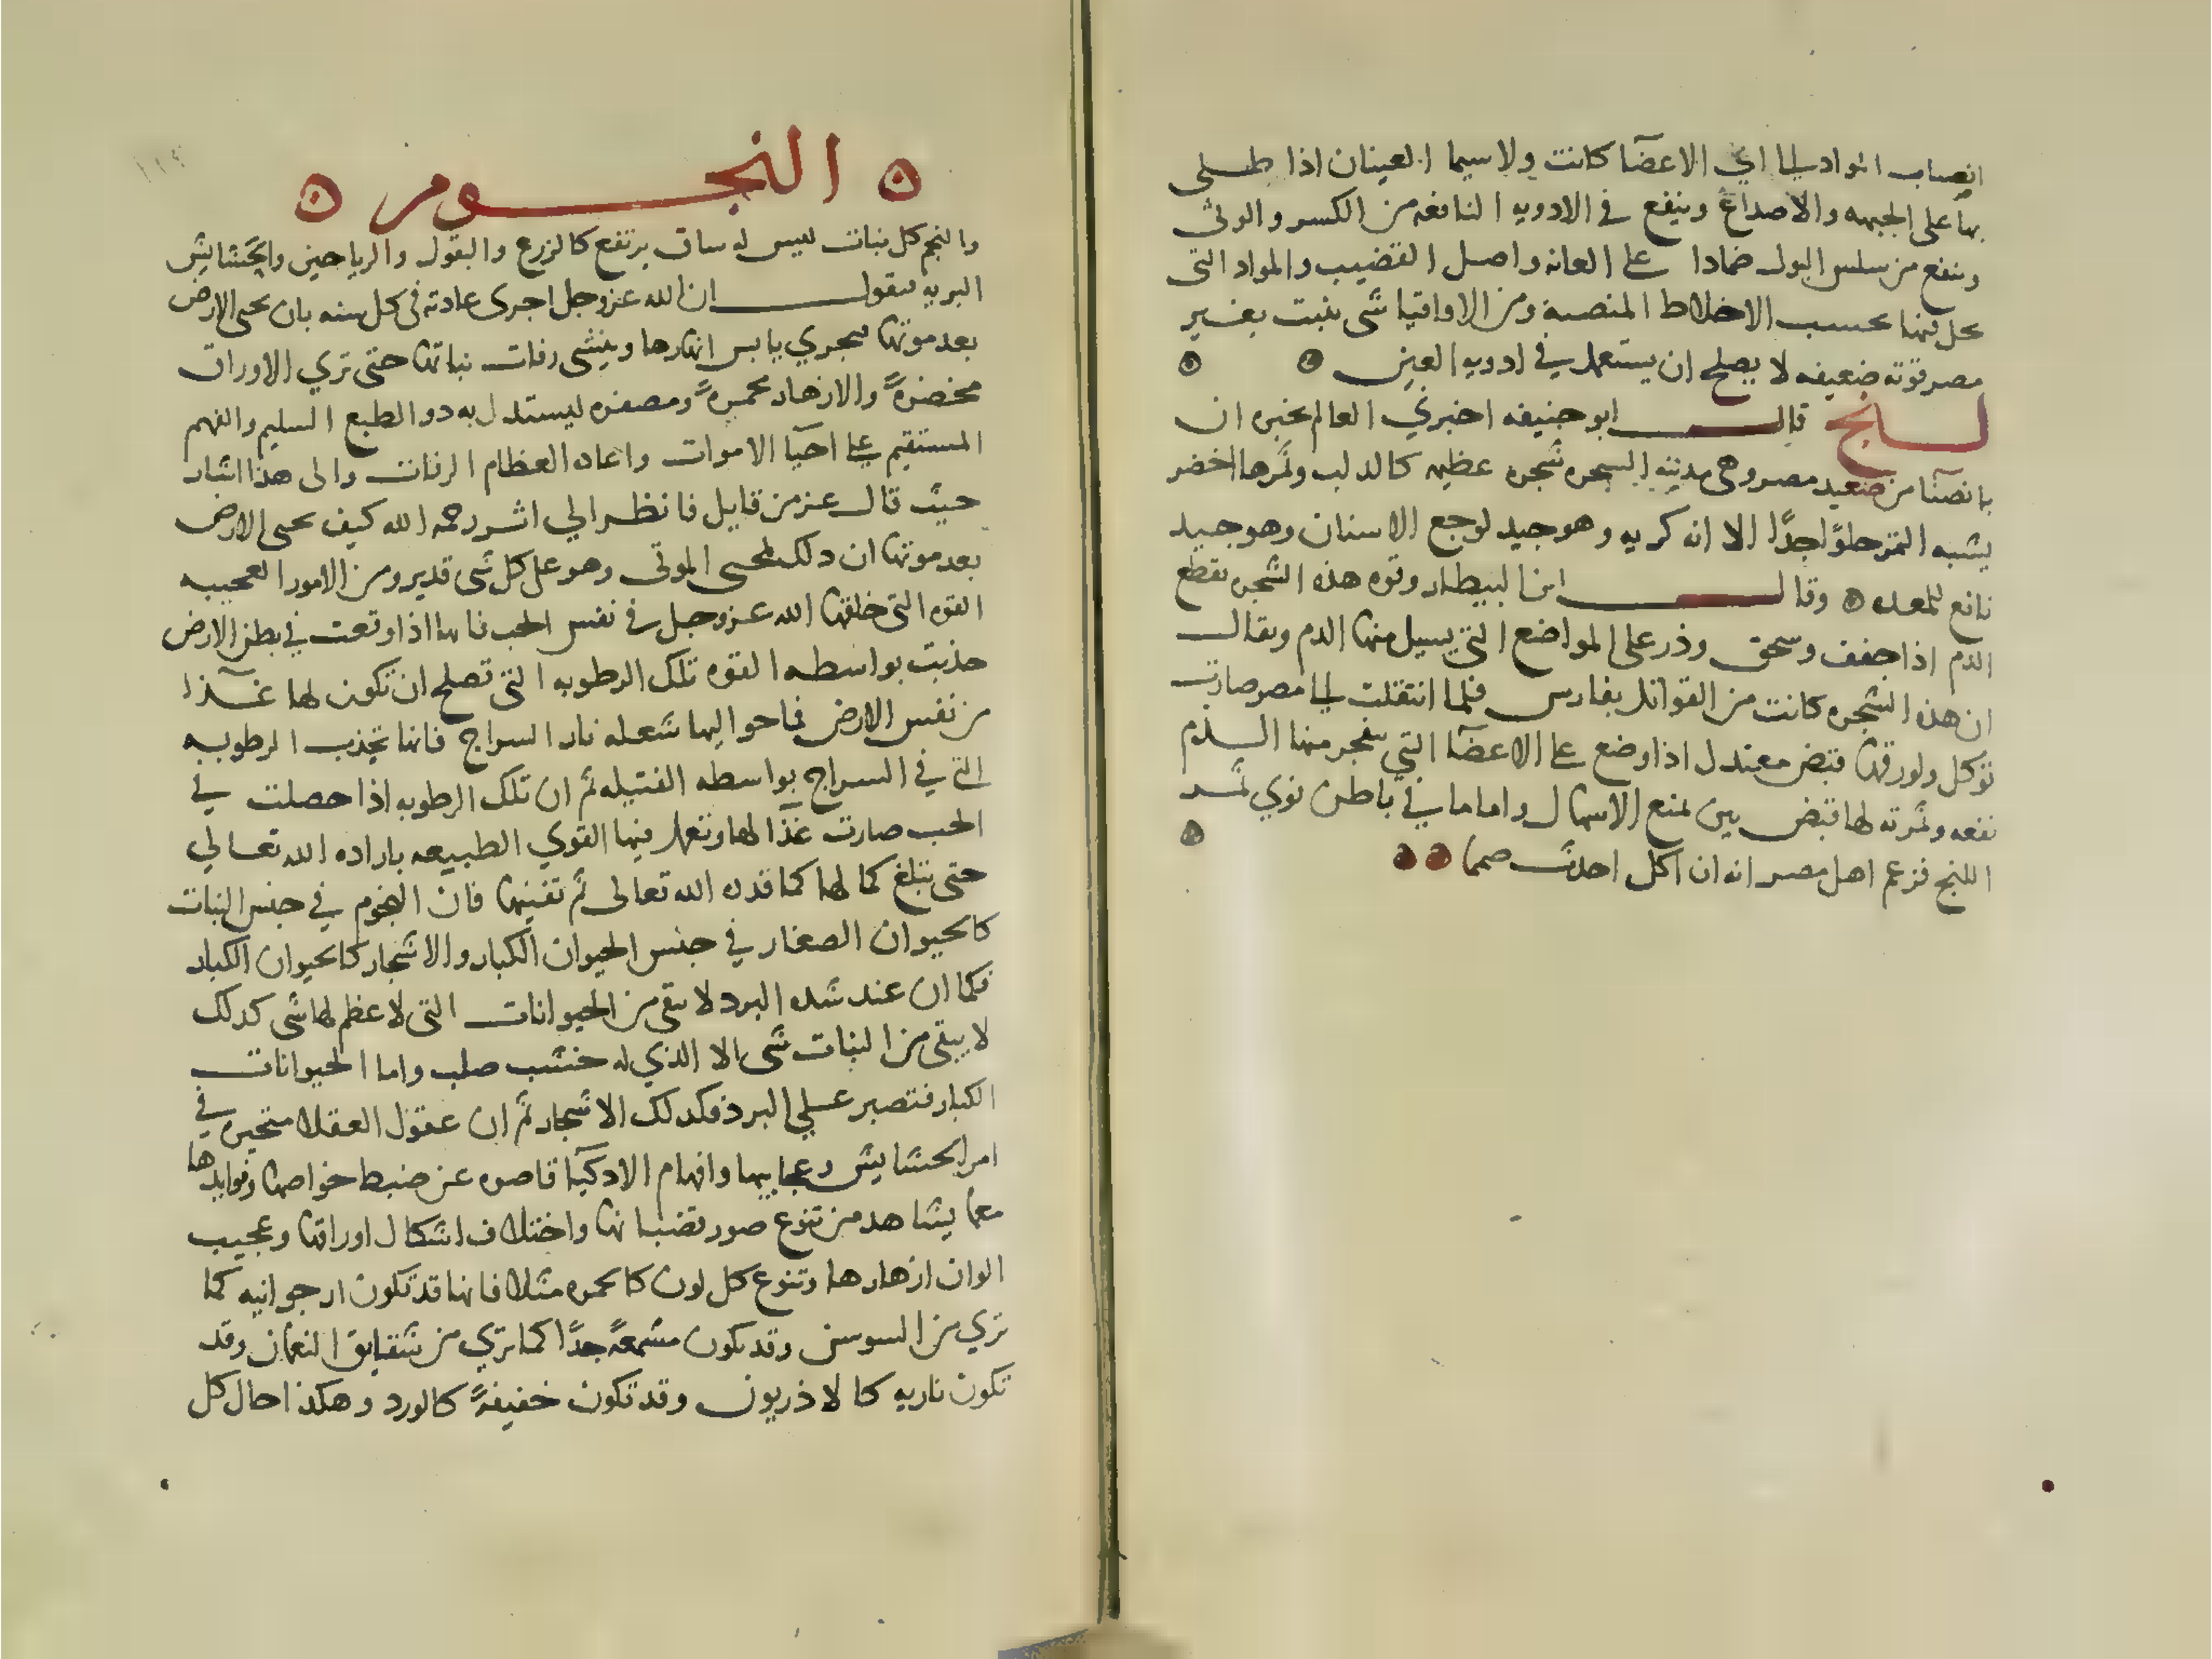 انصباب المواد الى اي الاعضآ كانت ولا سيما العينان اذا طلى
بها على الجبهه والاصداغ وينفع في الادويه النافعه من الكسر والوثى
وينفع من سلس البول ضمادا على العانه واصل القضيب والمواد التى
بحسب الاخلاط المنصبة ومن الاقاقيا شى ينبت بغير
مصر قوته ضعيفه لا يصلح ان يستعمل في ادويه العين
لبنج قال ابو حنيفه اخبرني العالم بخبره ان
بانصنا من صعيد مصر وهى مدينه السحره شجره عظيمه كالدلب وثمرها اخضر
يشبه التمر حلوًا جدًّا الا انه كريه وهو جيد لوجع الاسنان وهو جيد
نافع للمعده وقال ابن البيطار وقوه هذه الشجره تقطع
الدم اذا جفف وسحق وذر على المواضع التى يسيل منها الدم ويقال
ان هذه الشجره كانت من القواتل بفارس فلما انتقلت الى مصر صارت
توكل ولورقها قبض معتدل اذا وضع على الاعضآ التي ينفجر منها الدم
نفعه وثمرته لها قبض بين لمنع الاسهال واما ما في باطن نوي ثمر
اللبنج فزعم اهل مصر انه ان اكل احدث صمما
النجوم
والنجم كل نبات ليس له ساق يرتفع كالزرع والبقول والرياحين والحشايش
البريه فنقول ان الله عز وجل اجرى عادته فى كل سنه بان يحيى الارض
بعد موتها فيجري يابس انهارها وينشى رفات نباتها حتى تري الاوراق
مخضرةً والازهار محمرةً ومصفره ليستدل به ذو الطبع السليم والفهم
المستقيم على احيآ الاموات واعاده العظام الرفات والى هذا اشار
حيث قال عز من قايل فانظر الي اثر رحمه الله كيف يحيى الارض
بعد موتها ان ذلك لمحيى الموتى وهو على كل شى قدير ومن الامور العجيبه
القوه التى خلقها الله عز وجل في نفس الحب فانها اذا وقعت في بطن الارض
جذبت بواسطه القوه تلك الرطوبه التى تصلح ان تكون لها غذآ
من نفس الارض فما حواليها شعله نار السراج فانها تجذب الرطوبه
التى في السراج بواسطه الفتيله ثم ان تلك الرطوبه اذا حصلت في
الحب صارت غذآ لها وتعمل فيها القوي الطبيعه باراده الله تعالي
حتى تبلغ كمالها كما قدره الله تعالى ثم تفنيها فان النجوم في جنس النبات
كالحيوان الصغار في جنس الحيوان الكبار والاشجار كالحيوان الكبار
فكما ان عند شده البرد لا يبقى من الحيوانات التى لا عظم لها شى كذلك
لا يبقى من النبات شى الا الذي له خشب صلب واما الحيوانات
الكبار فتصبر علي البرد فكذلك الاشجار ثم ان عقول العقلا متحيره في
امر الحشايش وعجايبها وافهام الاذكيآ قاصره عن ضبط خواصها وفوايدها
مما يشاهد من تنوع صور قضبانها واختلاف اشكال اوراقها وعجيب
الوان ازهارها وتنوع كل لون كالحمره مثلا فانها قد تكون ارجوانيه كما
تري من السوسن وقد تكون مشمعةً جدًّا كما تري من شقايق النعمان وقد
تكون ناريه كالاذريون وقد تكون خفيفةً كالورد وهكذا حال كل